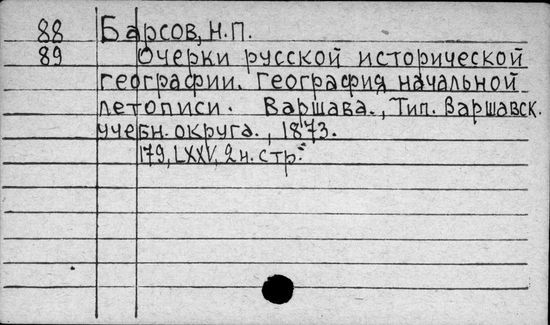 88 Барсов, Н.П.
89 Очерки русской исторической
географии. География начальной
летописи. Варшава., Тип. Варшавск.
учебн. округа., 1873.
179, LXXV, 2 н. стр.